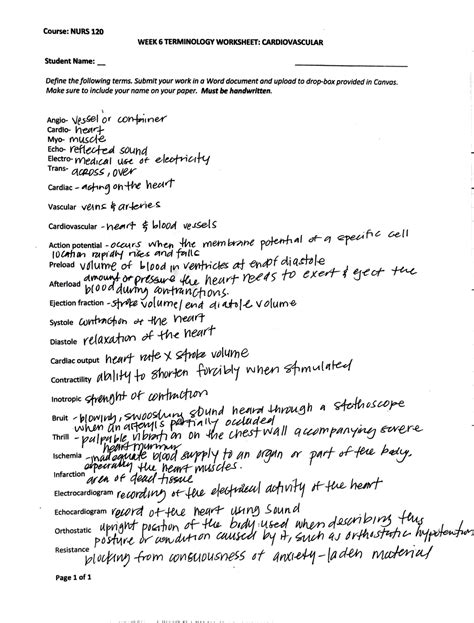 Course: NURS 120
WEEK 6 TERMINOLOGY WORKSHEET: CARDIOVASCULAR
Student Name: __
Define the following terms. Submit your work in a Word document and upload to drop-box provided in Canvas.
Make sure to include your name on your paper. Must be handwritten.
Angio- vessel or container
Cardio- heart
Myo- muscle
Echo- reflected sound
Electro- medical use of electricity
Trans- across, over
Cardiac - acting on the heart
Vascular veins & arteries
Cardiovascular - heart & blood vessels
Action potential - occurs when the membrane potential of a specific cell
location rapidly rises and falls
Preload volume of blood in ventricles at end of diastole
Afterload amount or pressure the heart needs to exert & eject the
blood during contractions.
Ejection fraction - stroke volume/end diatole volume
Systole contraction of the heart
Diastole relaxation of the heart
Cardiac output heart rate x stroke volume
Contractility ability to shorten forcibly when stimulated
Inotropic strenght of contraction
Bruit - blowing, swooshing sound heard through a stethoscope
when an artery is partially occluded
Thrill - palpable vibration on the chest wall accompanying severe
heart murmur
Ischemia - inadequate blood supply to an organ or part of the body.
especially the heart muscles.
Infarction area of dead tissue
Electrocardiogram recording of the electrical activity of the heart
Echocardiogram record of the heart using sound
Orthostatic upright position of the body: used when describing this
posture or condition caused by it, such as orthostatic hypotention
Resistance blocking from consciousness of anxiety-laden material
Page 1 of 1